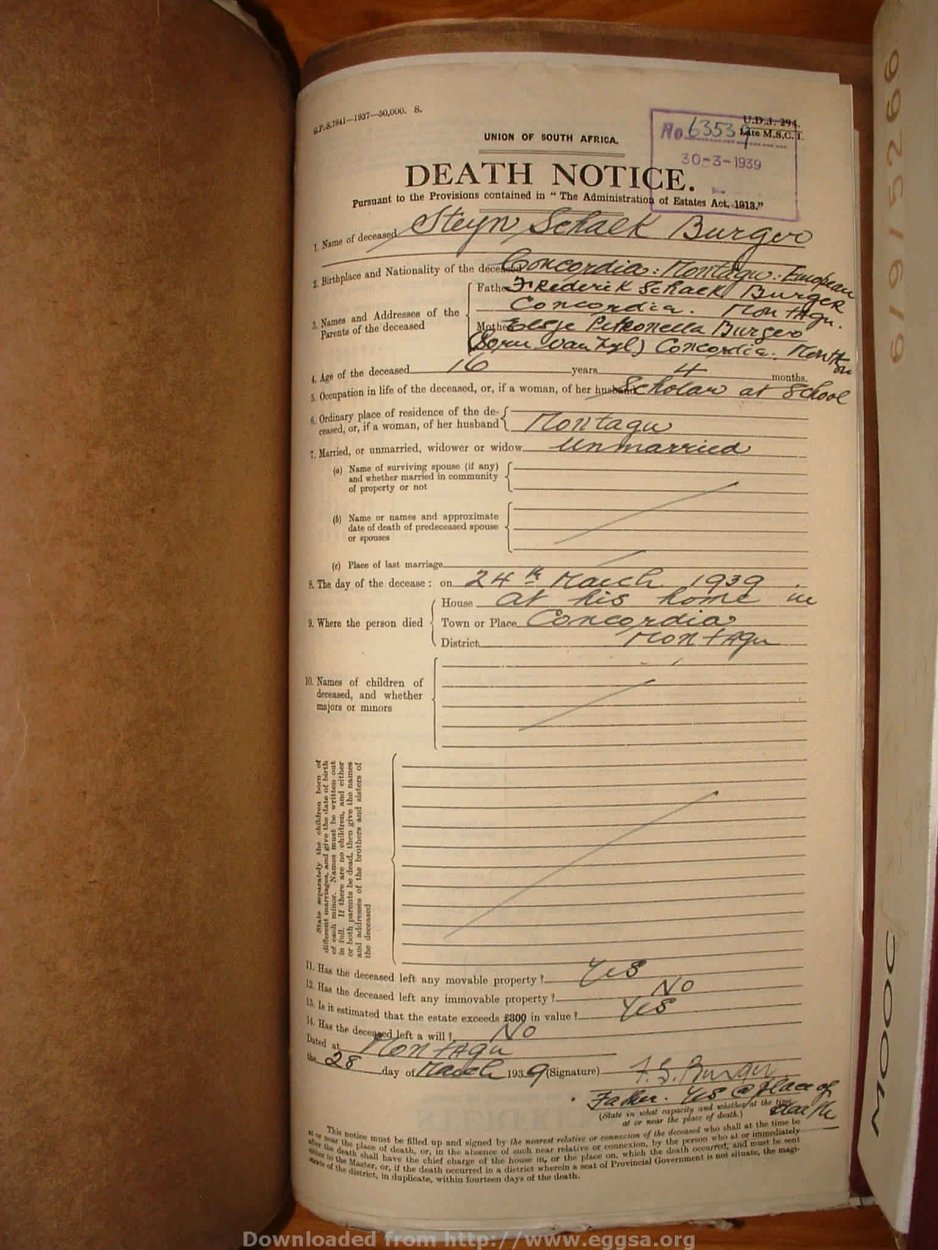 G.P.-S.7641—1937—50,000. S.
U.D.J. 294.
Late M.S.C. 1.
No. 63539
30-3-1939
UNION OF SOUTH AFRICA.
DEATH NOTICE.
Pursuant to the Provisions contained in "The Administration of Estates Act, 1913."
1. Name of deceased Steyn Schalk Burger
2. Birthplace and Nationality of the deceased Concordia: Montagu: European
3. Names and Addresses of the Parents of the deceased
Father Frederick Schalk Burger
Concordia. Montagu.
Mother Petronella Burger
(Born Van Zyl) Concordia. Montagu
4. Age of the deceased 16 years 4 months.
5. Occupation in life of the deceased, or, if a woman, of her husband Scholar at School
6. Ordinary place of residence of the de-
ceased, or, if a woman, of her husband Montagu
7. Married, or unmarried, widower or widow Unmarried
(a) Name of surviving spouse (if any)
and whether married in community
of property or not
(b) Name or names and approximate
date of death of predeceased spouse
or spouses
(c) Place of last marriage
8. The day of the decease: on 24th March 1939.
9. Where the person died
House at his home in
Town or Place Concordia
District Montagu
10. Names of children of
deceased, and whether
majors or minors
State separately the children born of
different marriages, and give the date of birth
of each minor. Names must be written out
in full. If there are no children, and either
or both parents be dead, then give the names
and addresses of the brothers and sisters of
the deceased
11. Has the deceased left any movable property? Yes
12. Has the deceased left any immovable property? No
13. Is it estimated that the estate exceeds £300 in value? Yes
14. Has the deceased left a will? No
Dated at Montagu
the 28 day of March 1939 (Signature) F. S. Burger
Father. Yes @ place of
death
(State in what capacity and whether at the time
at or near the place of death.)
This notice must be filled up and signed by the nearest relative or connexion of the deceased who shall at the time be
at or near the place of death, or, in the absence of such near relative or connexion, by the person who at or immediately
after the death shall have the chief charge of the house in, or the place on, which the death occurred, and must be sent
either to the Master, or, if the death occurred in a district wherein a seat of Provincial Government is not situate, the magi-
strate of the district, in duplicate, within fourteen days of the death.
MOOC
6/9/5 6296
Downloaded from http://www.eggsa.org